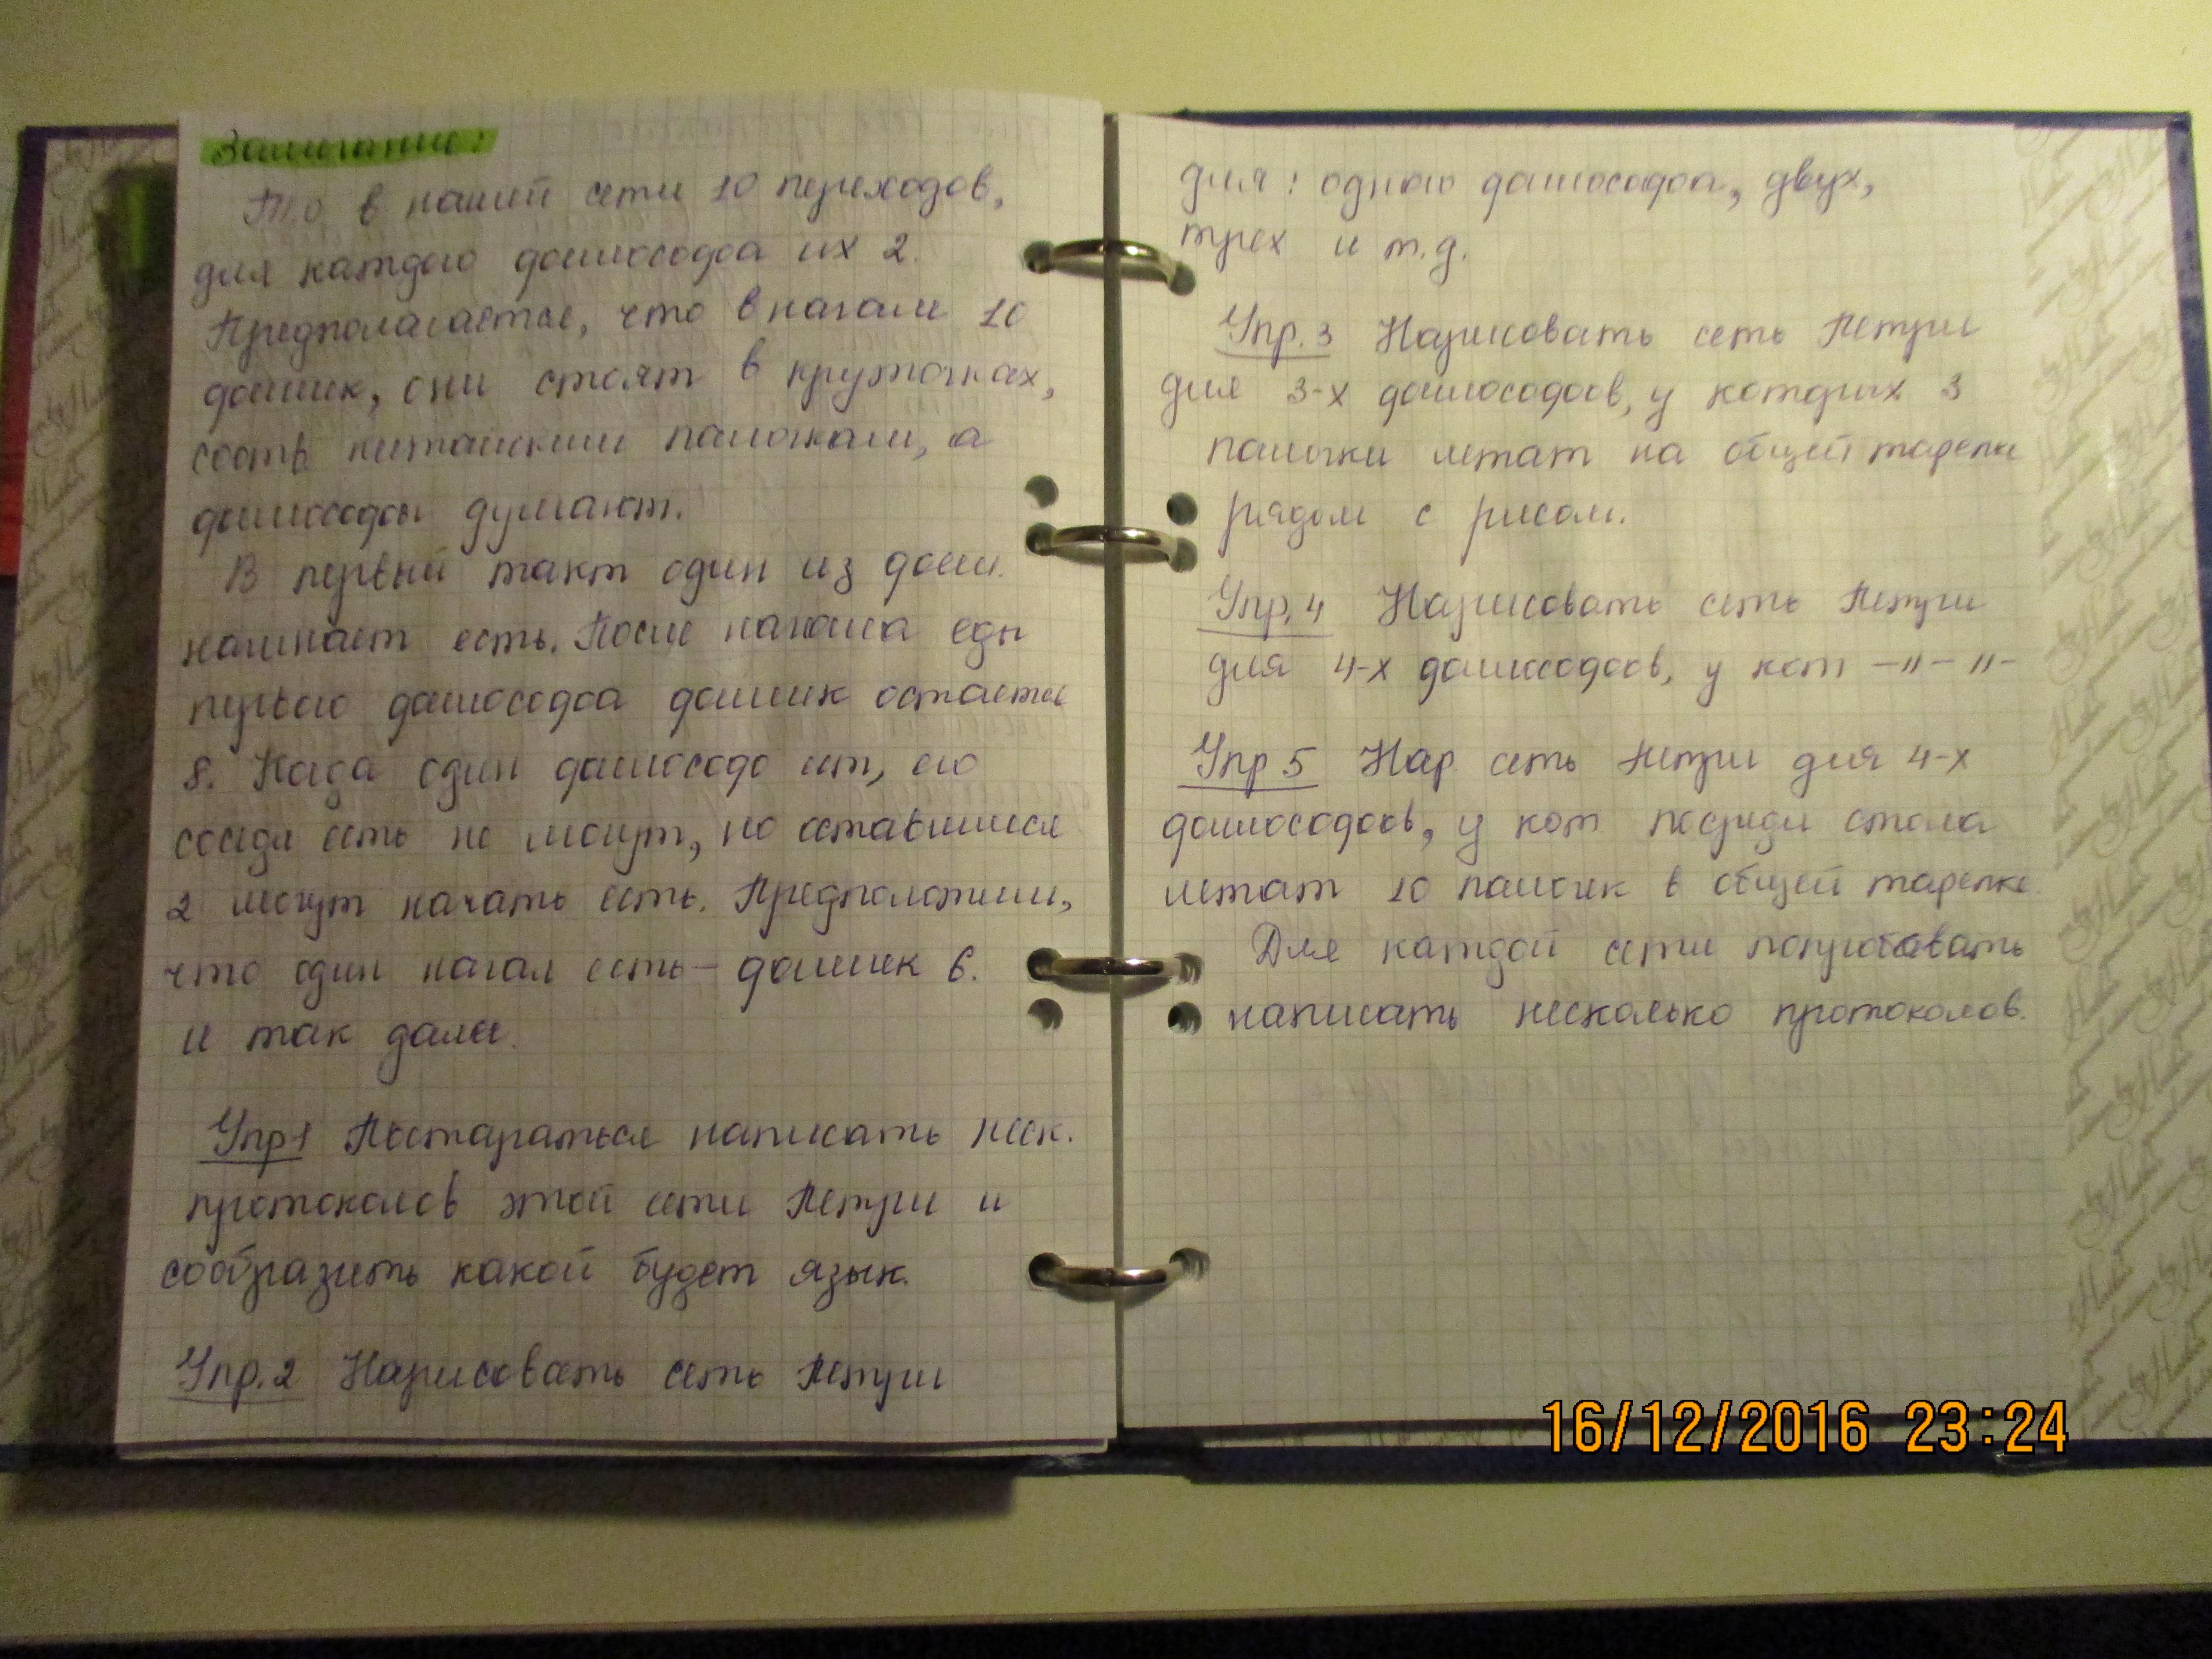 Замечание:
Т.о в нашей сети 10 переходов,
для каждого философа их 2.
Предполагается, что в начале 10
фишек, они стоят в кружочках,
соотв китайским палочкам, а
философы думают.
В первый такт один из фил.
начинает есть. После начала еды
первого философа фишек остается
8. Когда один философ ест, его
соседи есть не могут, но оставшиеся
2 могут начать есть. Предположим,
что один начал есть - фишек 6.
и так далее.
Упр1 Постараться написать неск.
протоколов этой сети Петри и
сообразить какой будет язык.
Упр.2 Нарисовать сеть Петри
для: одного философа, двух,
трех и т.д.
Упр.3 Нарисовать сеть Петри
для 3-х философов, у которых 3
палочки лежат на общей тарелке
рядом с рисом.
Упр.4 Нарисовать сеть Петри
для 4-х философов, у кот -"-"-
Упр 5 Нар сеть Петри для 4-х
философов, у кот посреди стола
лежат 10 палочек в общей тарелке.
Для каждой сети попробовать
написать несколько протоколов.
16/12/2016 23:24